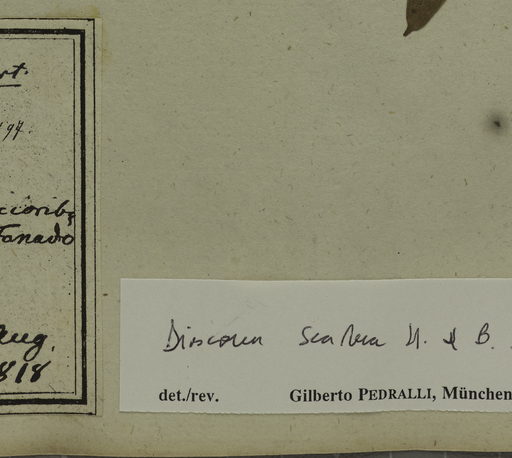 rt.
197.
Fanado
Aug.
1818
Dioscorea scabra H. & B.
det./rev. Gilberto PEDRALLI, München